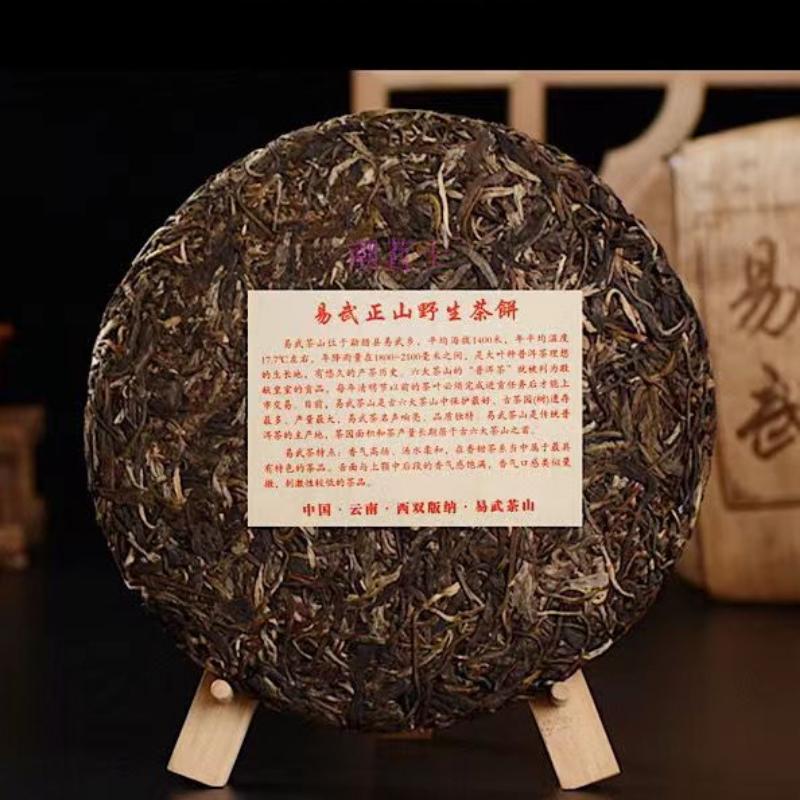 易武正山野生茶餅
易武茶山位于勐腊县易武乡，平均海拔1400米，年平均温度
17.7℃左右，年降雨量在1800-2100毫米之间，是大叶种普洱茶理想
的生长地，有悠久的产茶历史。六大茶山的“普洱茶”就被列为敬
献皇室的贡品，每年清明节以前的茶叶必须完成进贡任务后才能上
市交易。目前，易武茶山是古六大茶山中保护最好、古茶园(树)遗存
最多、产量最大，易武茶名声响亮、品质独特。易武茶山是传统普
洱茶的主产地，茶园面积和茶产量长期居于古六大茶山之首。
易武茶特点：香气高扬、汤水柔和，在香甜茶系当中属于最具
有特色的茶品。舌面与上颚中后段的香气感饱满，香气口感类似
，刺激性较低的茶品。
中国·云南·西双版纳·易武茶山
易
武